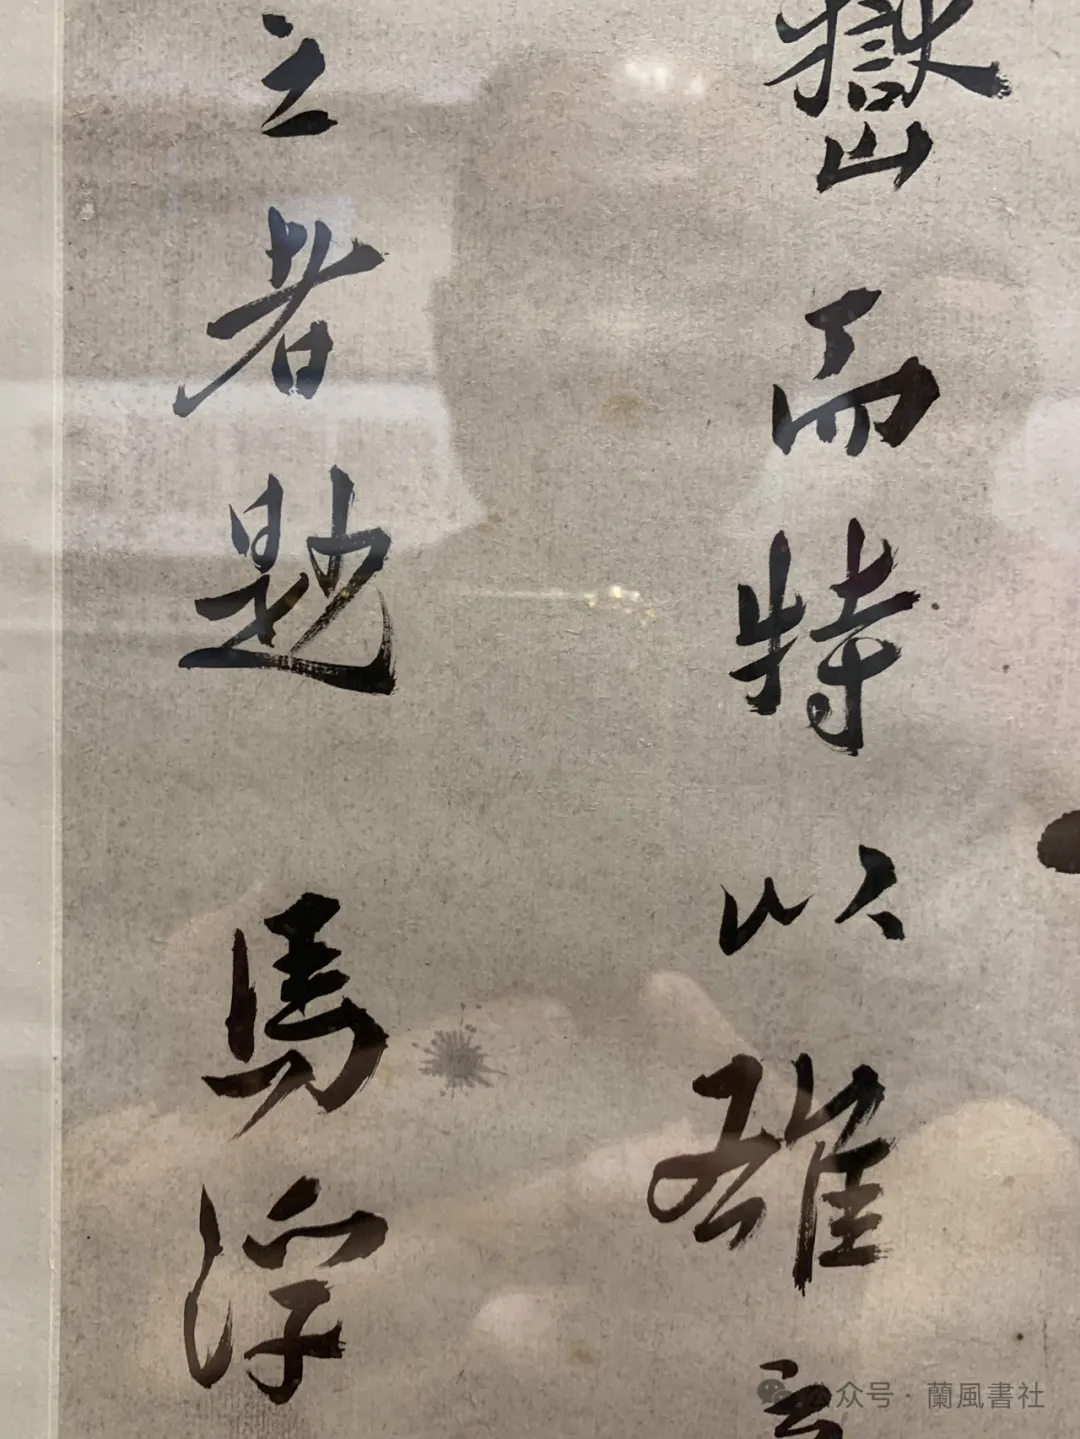 嶽而特以雄
之者尟
馬浮
公众号·蘭風書社